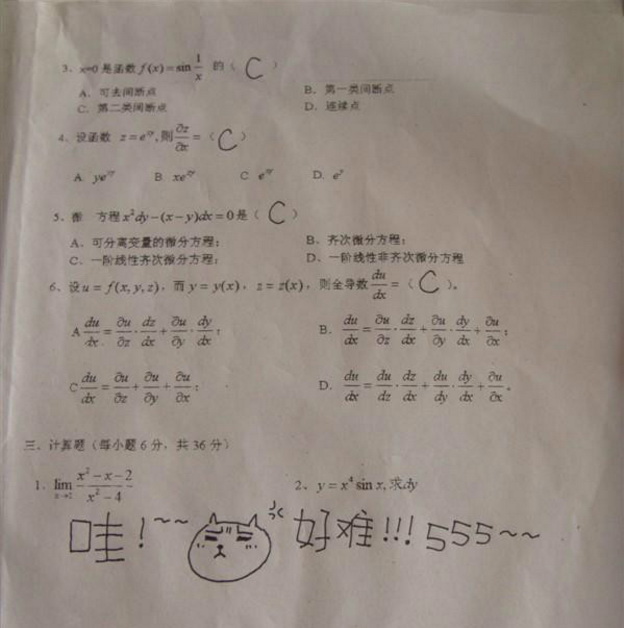 3、x=0 是函数 f(x)=sin 1/x 的（ C ）
A、可去间断点 B、第一类间断点
C、第二类间断点 D、连续点
4、设函数 z=e^{xy},则 ∂z/∂x =（ C ）
A ye^{xy} B xe^{xy} C e^{xy} D. e^y
5、微 方程 x²dy-(x-y)dx=0 是（ C ）
A、可分离变量的微分方程； B、齐次微分方程；
C、一阶线性齐次微分方程； D、一阶线性非齐次微分方程
6、设 u=f(x,y,z)，而 y=y(x)，z=z(x)，则全导数 du/dx =（ C ）。
A du/dx = ∂u/∂z · dz/dx + ∂u/∂y · dy/dx； B. du/dx = ∂u/∂z · dz/dx + ∂u/∂y · dy/dx + ∂u/∂x；
C du/dx = ∂u/∂z + ∂u/∂y + ∂u/∂x； D. du/dx = du/dz · dz/dx + du/dy · dy/dx + ∂u/∂x。
三、计算题（每小题 6 分，共 36 分）
1、lim x→2 (x²-x-2)/(x²-4) 2、y=x⁴ sin x,求dy
哇！~~ 好难!!! 555~~